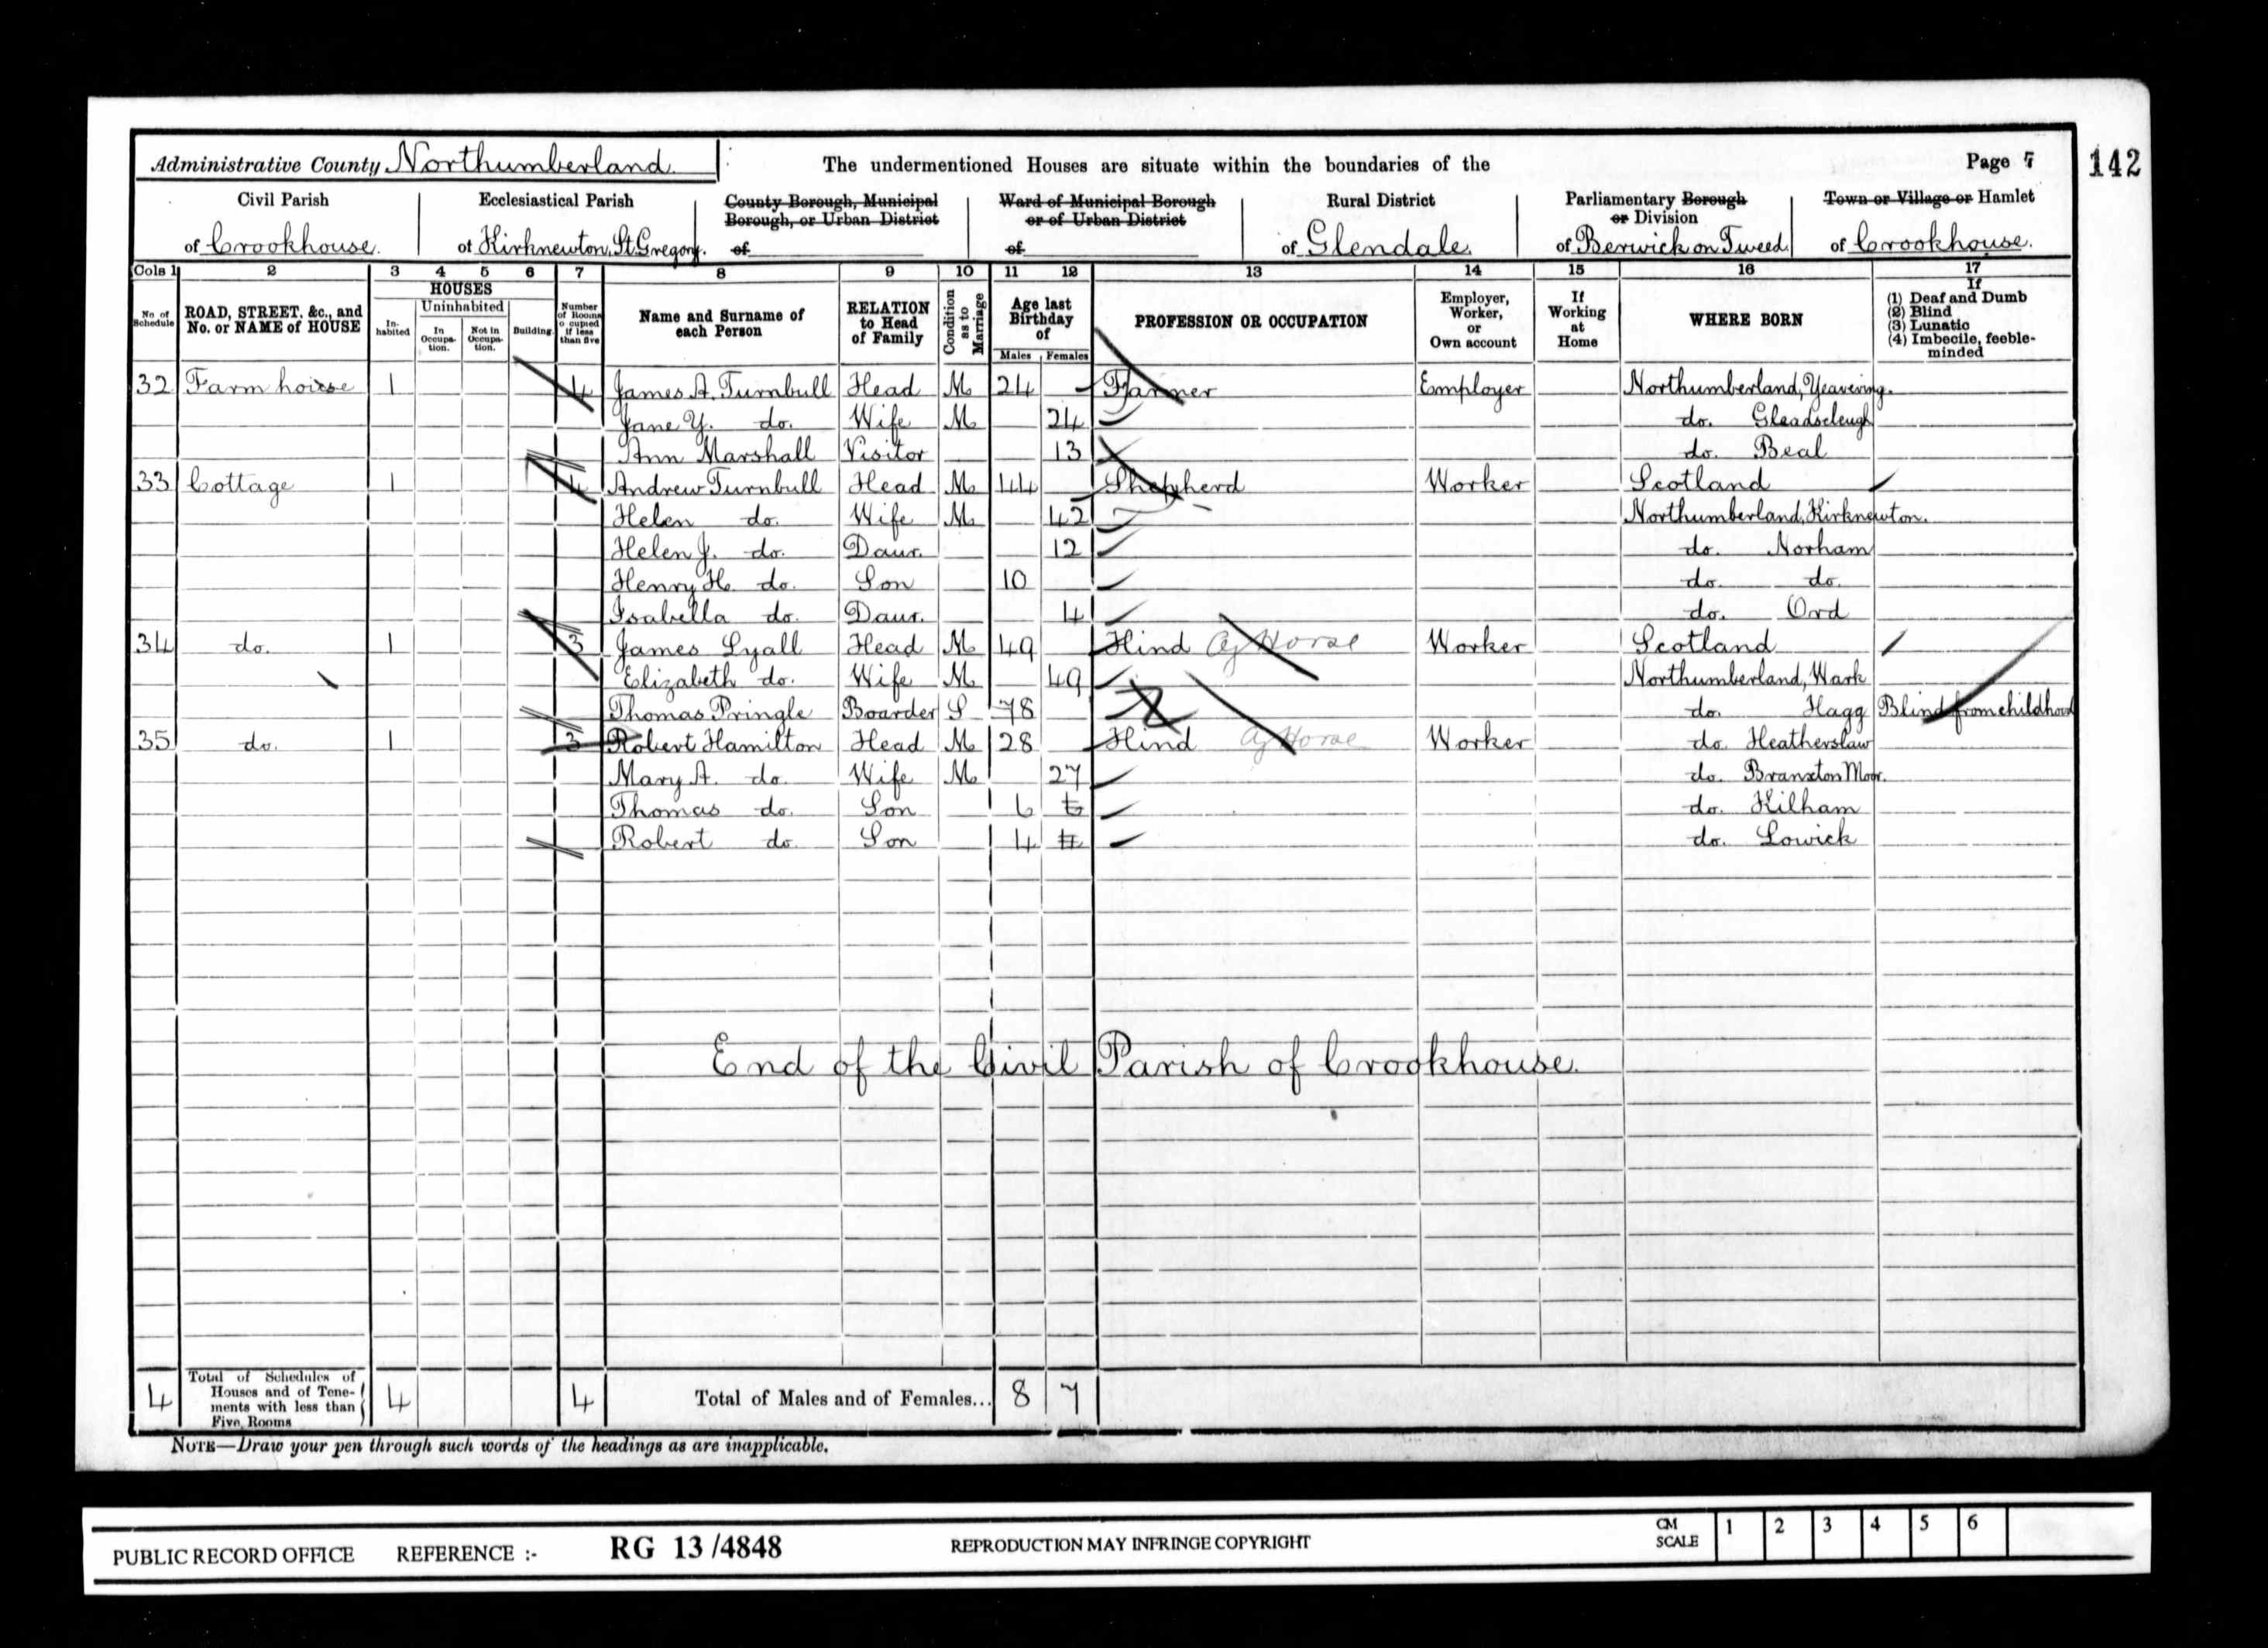 Administrative County Northumberland. The undermentioned Houses are situate within the boundaries of the Page 7 142
Civil Parish Ecclesiastical Parish County Borough, Municipal Borough, or Urban District Ward of Municipal Borough or of Urban District Rural District Parliamentary Borough or Division Town or Village or Hamlet
of Crookhouse. of Kirknewton, St. Gregory. of of of Glendale. of Berwick on Tweed. of Crookhouse.
Cols 1 2 3 4 5 6 7 8 9 10 11 12 13 14 15 16 17
No of Schedule ROAD, STREET, &c., and No. or NAME of HOUSE HOUSES Inhabited Uninhabited In Occupation. Not in Occupation. Building Number of Rooms occupied if less than five Name and Surname of each Person RELATION to Head of Family Condition as to Marriage Age last Birthday of Males Females PROFESSION OR OCCUPATION Employer, Worker, or Own account If Working at Home WHERE BORN If (1) Deaf and Dumb (2) Blind (3) Lunatic (4) Imbecile, feeble-minded
32 Farm house 1 4 James A. Turnbull Head M 24 Farmer Employer Northumberland, Yeavering.
Jane Y. do. Wife M 24 do. Gleadscleugh
Ann Marshall Visitor 13 do. Beal
33 Cottage 1 4 Andrew Turnbull Head M 44 Shepherd Worker Scotland
Helen do. Wife M 42 Northumberland, Kirknewton.
Helen J. do. Daur. 12 do. Norham
Henry H. do. Son 10 do. do.
Isabella do. Daur. 4 do. Ord
34 do. 1 3 James Lyall Head M 49 Hind Ag Horse Worker Scotland
Elizabeth do. Wife M 49 Northumberland, Wark
Thomas Pringle Boarder S 78 do. Hagg Blind from childhood
35 do. 1 3 Robert Hamilton Head M 28 Hind Ag Horse Worker do. Heatherslaw
Mary A. do. Wife M 27 do. Branxton Moor.
Thomas do. Son 6 6 do. Kilham
Robert do. Son 4 4 do. Lowick
End of the Civil Parish of Crookhouse.
4 Total of Schedules of Houses and of Tenements with less than Five Rooms 4 4 Total of Males and of Females... 8 7
NOTE—Draw your pen through such words of the headings as are inapplicable.
PUBLIC RECORD OFFICE REFERENCE :- RG 13 /4848 REPRODUCTION MAY INFRINGE COPYRIGHT CM SCALE 1 2 3 4 5 6